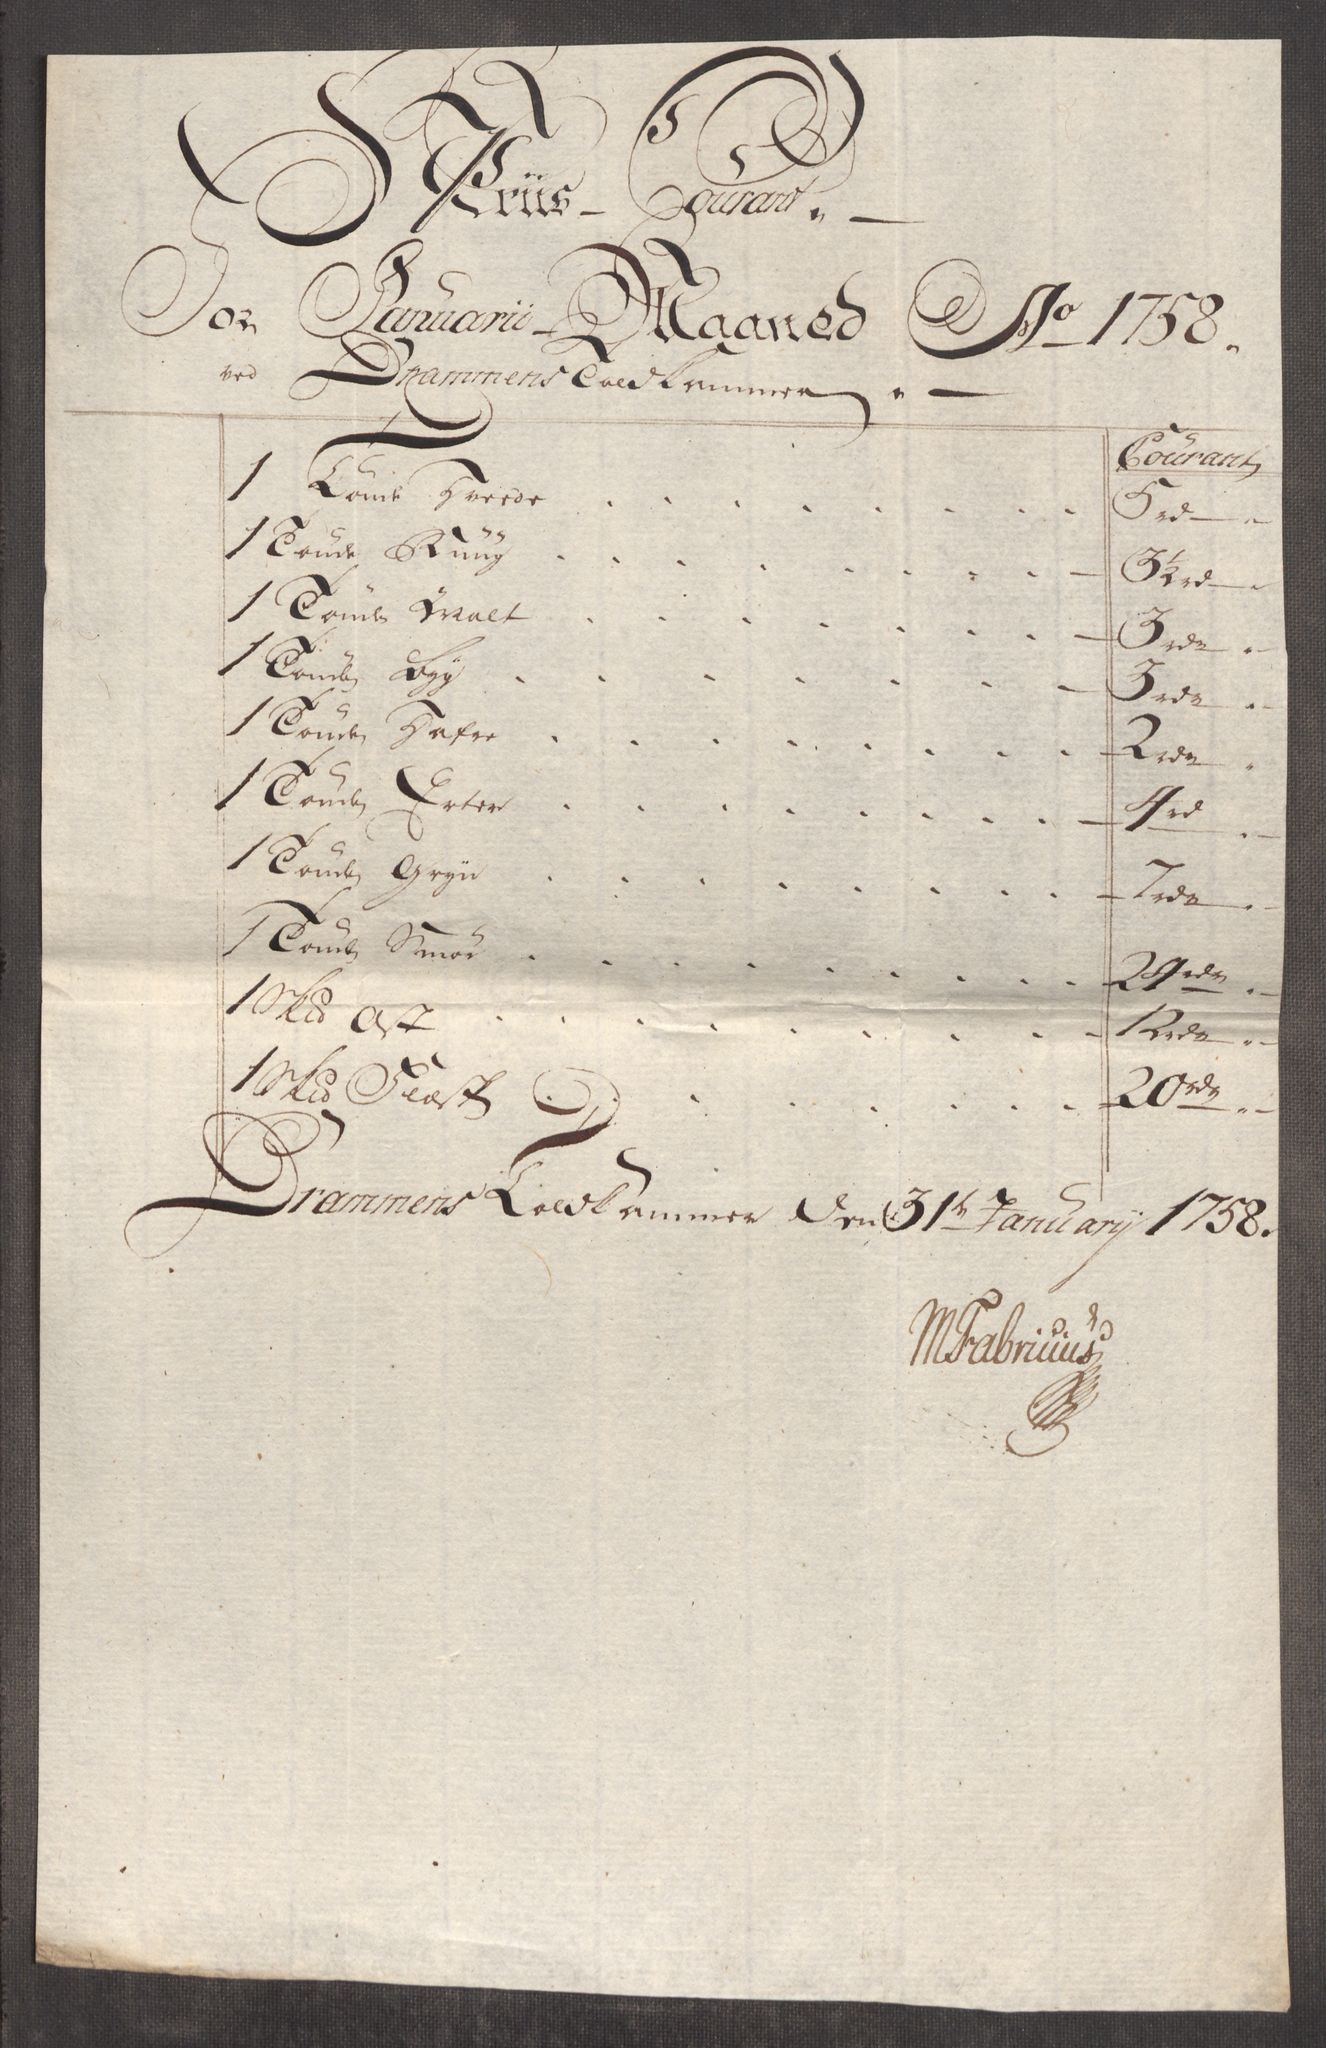 Priis-Courant
For Januarii Maaned Ao 1758.
ved Drammens Toldkammer
Courant
1 Tönde Hvede 5 rd
1 Tönde Rüüg 3½ rd
1 Tönde Malt 3 rdr
1 Tönde Byg 3 rdr
1 Tönde Hafre 2 rdr
1 Tönde Erter 4 rd
1 Tönde Gryn 7 rdr
1 Tönde Smör 24 rdr
1 Skd Ost 12 rdr
1 Skd Flæsk 20 rdr
Drammens Toldkammer den 31te Januarij 1758.
MFabricius